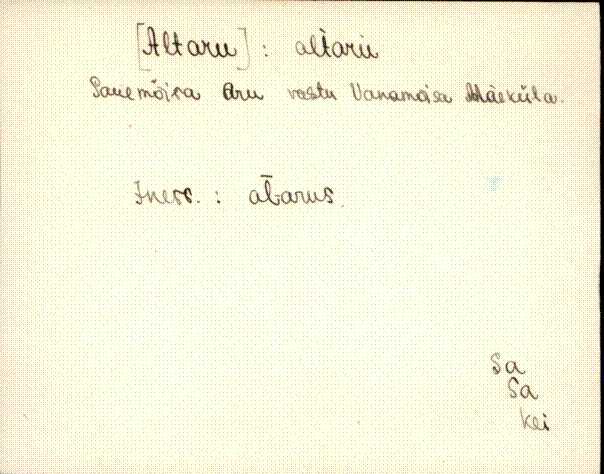 [Altaru] : al̀tarù
Sauemõisa Aru vastu Vanamõisa Mäeküla.
Iness. : al̄tarus.
Sa
Sa
Kei